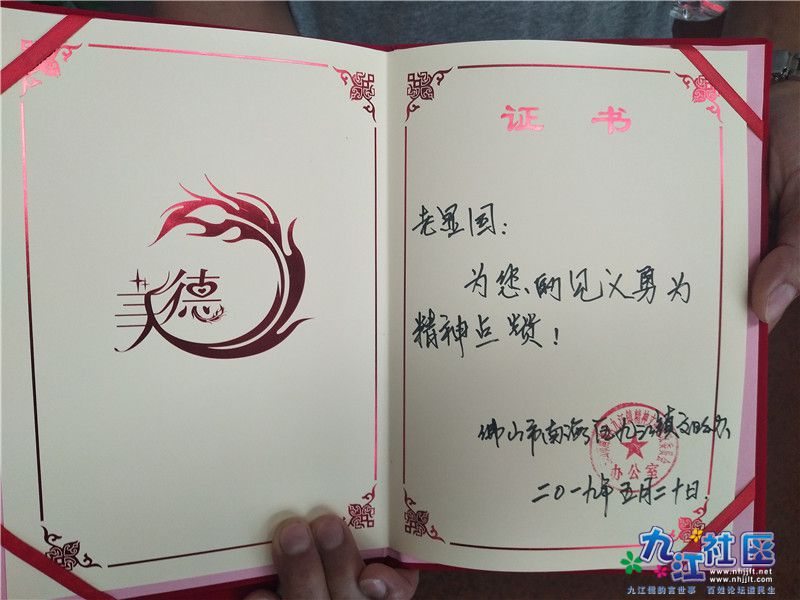 美德
证书
老显国：
为您的见义勇为
精神点赞！
佛山市南海区九江镇文明办
办公室
二〇一九年五月二十日
九江社区
www.nhjjlt.net
www.nhjjlt.com
九江儒韵言世事 百姓论坛道民生